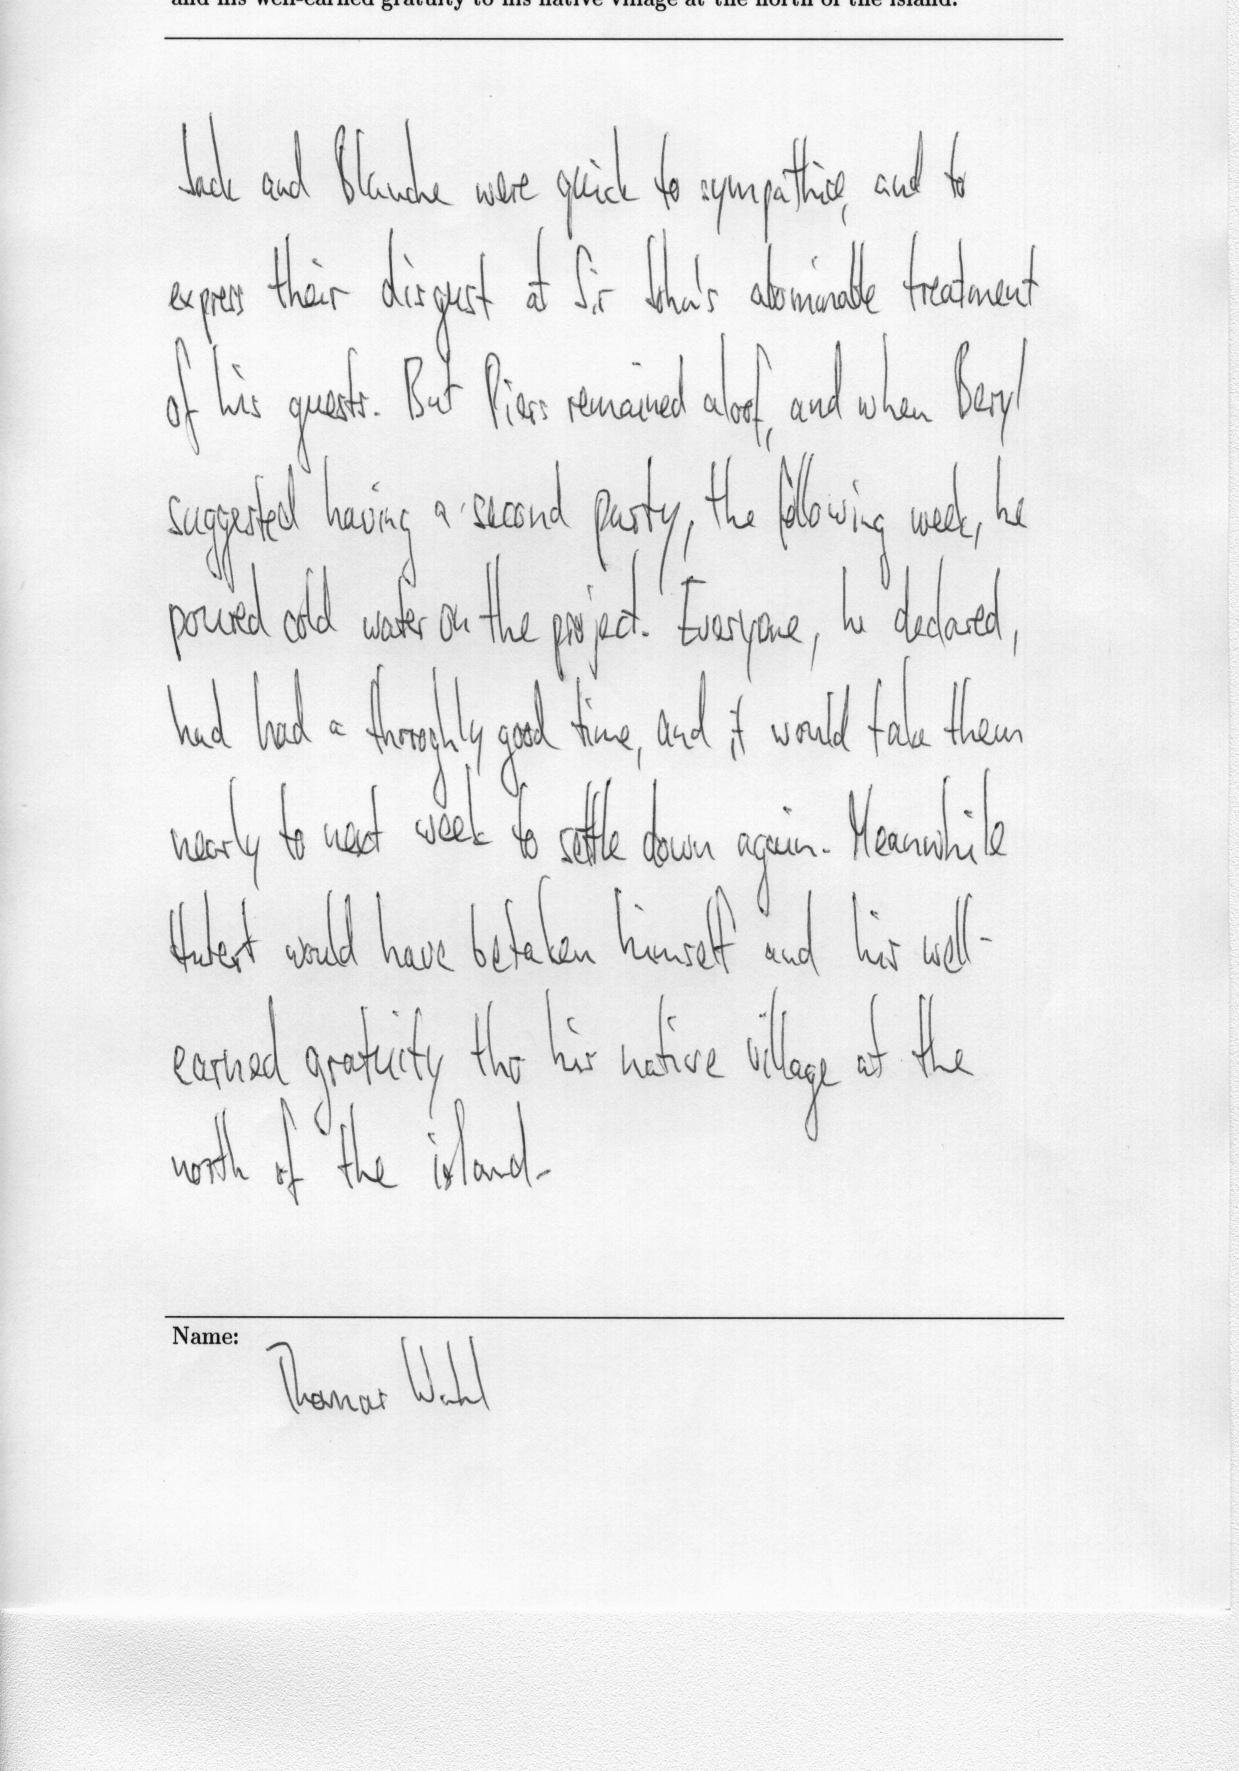 and his well-earned gratuity to his native village at the north of the island.
Jack and Blanche were quick to sympathice, and to
express their disgust at Sir John's abominable treatment
of his guests. But Piers remained aloof, and when Beryl
suggested having a second party, the following week, he
poured cold water on the project. Everyone, he declared,
had had a throroghly good time, and it would take them
nearly to next week to settle down again. Meanwhile
Hubert would have betaken himself and his well-
earned gratuity tho his native village at the
north of the island.
Name:
Thomas Wahl